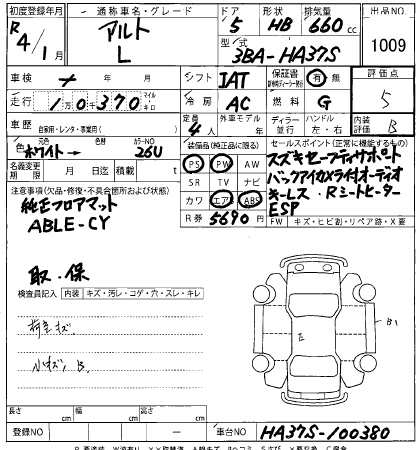 初度登録年月 通称車名・グレード ドア 形状 排気量 出品NO
R4/1月 アルト L 5 HB 660cc 1009
型式 3BA-HA37S
車検 年 月 シフト IAT 保証書 有 無 評価点
走行 1万0千370 マイル キロ 冷房 AC 燃料 G 5
車歴 自家用・レンタ・事業用( ) 定員 4人 外車モデル 年 ディーラー 並行 ハンドル 左・右 内装 B
色 元色 ホワイト→ 色替 カラーNO 26U 装備品(純正品に限る) セールスポイント(正常に機能するもの)
名義変更期限 月 日迄 積載 t PS PW AW スズキセーフティサポート
注意事項(欠品・修復・不具合箇所および状態) SR TV ナビ バックアイカメラ付オーディオ
純正フロアマット カワ エアB ABS キーレス・Rシートヒーター
ABLE-CY R券 5690円 ESP
FW キズ・ヒビ割・リペア跡・X要
取・保
検査員記入 内装 キズ・汚レ・コゲ・穴・スレ・キレ
小キズ B
B1
長さ cm 幅 cm 高さ cm
登録NO － 車台NO HA37S-100380